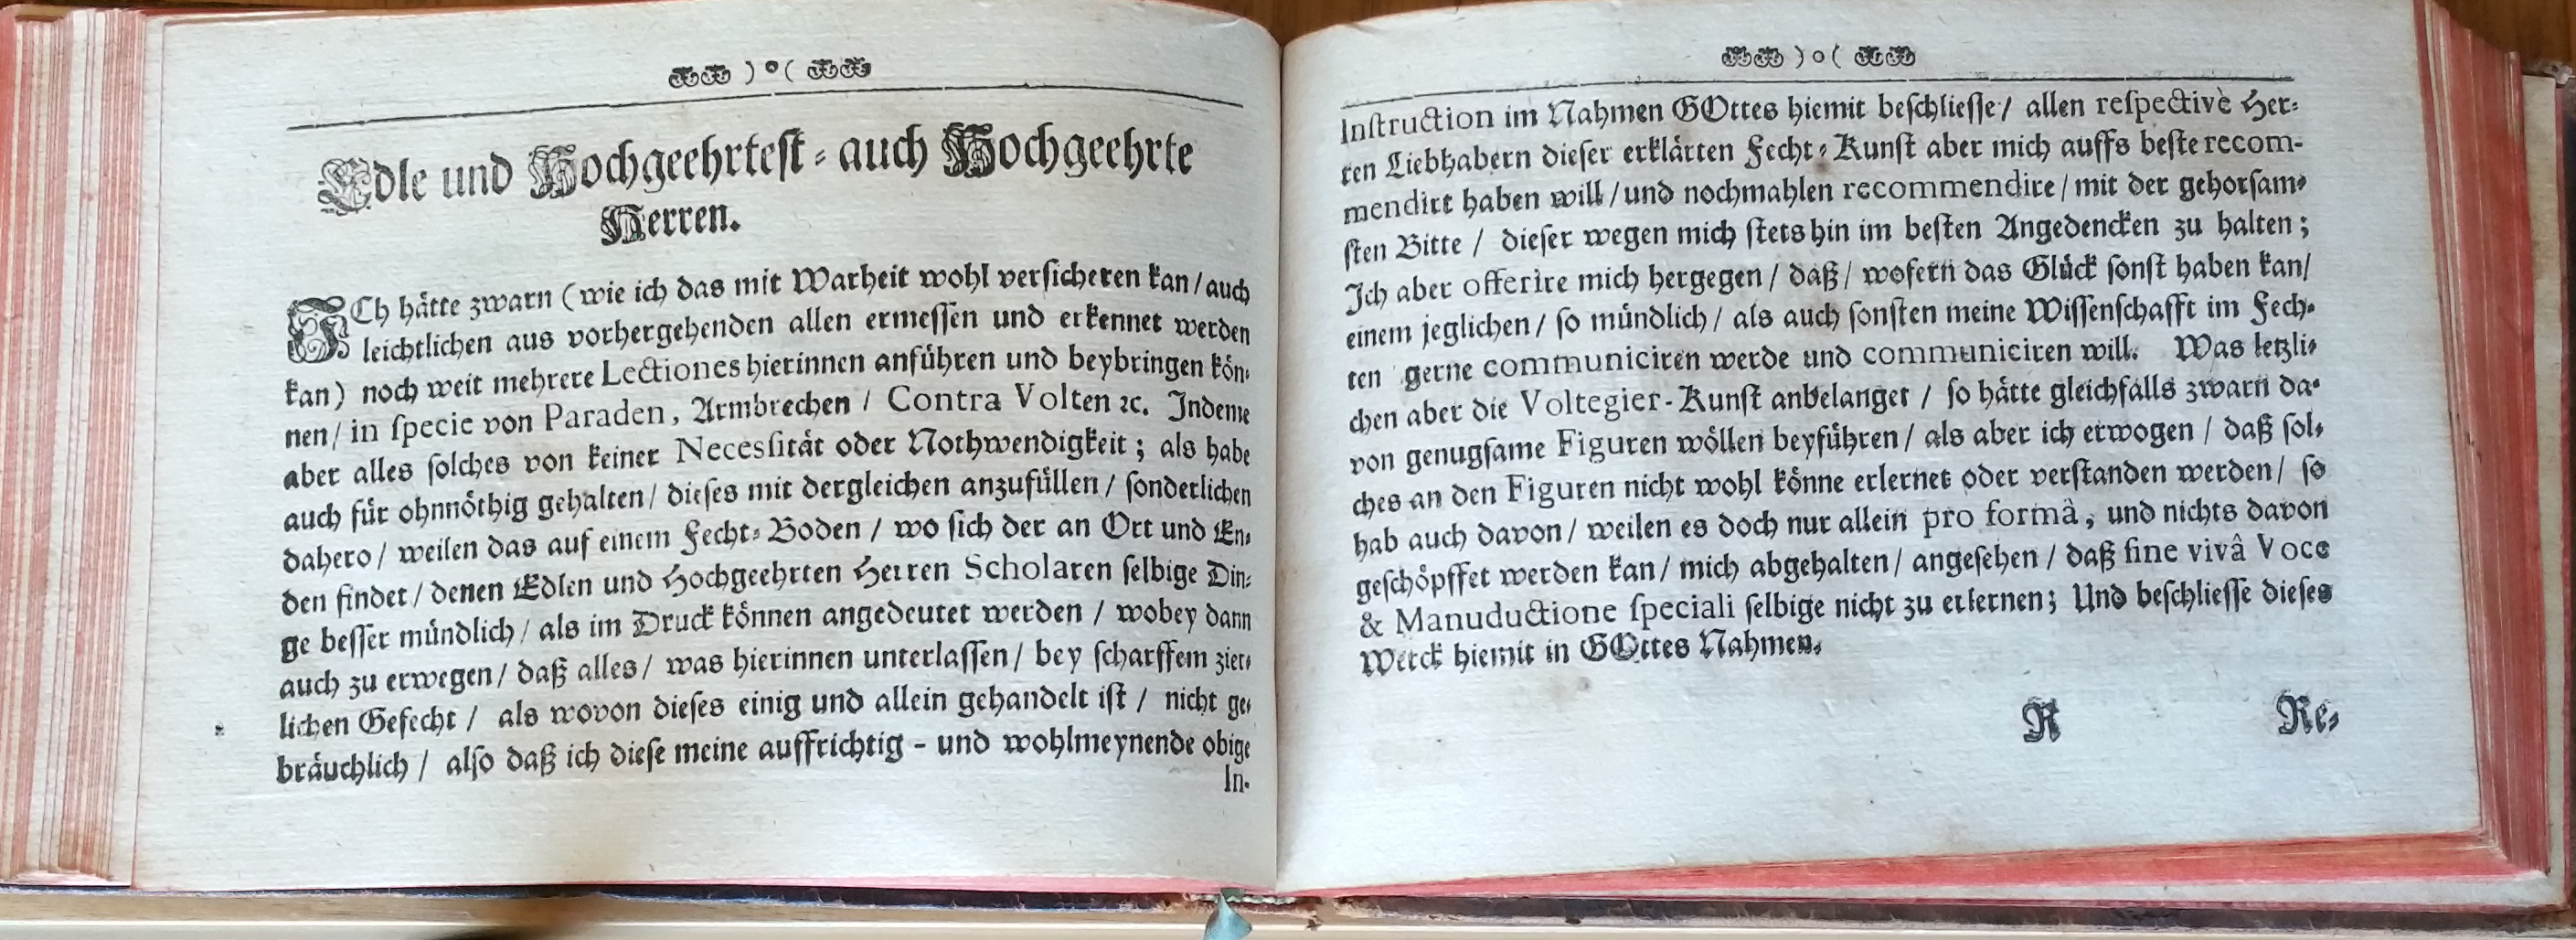 )o(
Edle und Hochgeehrtest- auch Hochgeehrte
Herren.
ICh hätte zwarn (wie ich das mit Warheit wohl versicheren kan/auch
leichtlichen aus vorhergehenden allen ermessen und erkennet werden
kan) noch weit mehrere Lectiones hierinnen anführen und beybringen kön-
nen/ in specie von Paraden, Armbrechen / Contra Volten ꝛc. Indeme
aber alles solches von keiner Necessität oder Nothwendigkeit; als habe
auch für ohnnöthig gehalten/ dieses mit dergleichen anzufüllen/ sonderlichen
dahero/ weilen das auf einem Fecht-Boden / wo sich der an Ort und En-
den findet/ denen Edlen und Hochgeehrten Herren Scholaren selbige Din-
ge besser mündlich/ als im Druck können angedeutet werden / wobey dann
auch zu erwegen/ daß alles/ was hierinnen unterlassen/ bey scharffem zier-
lichen Gefecht / als wovon dieses einig und allein gehandelt ist / nicht ge-
bräuchlich / also daß ich diese meine auffrichtig - und wohlmeynende obige
In-
)o(
Instruction im Nahmen GOttes hiemit beschliesse/ allen respectivè Her-
ren Liebhabern dieser erklärten Fecht-Kunst aber mich auffs beste recom-
mendirt haben will/und nochmahlen recommendire/mit der gehorsam-
sten Bitte / dieser wegen mich stetshin im besten Angedencken zu halten;
Ich aber offerire mich hergegen/ daß/ wofern das Glück sonst haben kan/
einem jeglichen/ so mündlich/ als auch sonsten meine Wissenschafft im Fech-
ten gerne communiciren werde und communiciren will. Was letzli-
chen aber die Voltegier-Kunst anbelanget / so hätte gleichfalls zwarn da-
von genugsame Figuren wöllen beyführen/ als aber ich erwogen / daß sol-
ches an den Figuren nicht wohl könne erlernet oder verstanden werden/ so
hab auch davon/ weilen es doch nur allein pro formâ, und nichts davon
geschöpffet werden kan/ mich abgehalten/ angesehen / daß sine vivâ Voce
& Manuductione speciali selbige nicht zu erlernen; Und beschliesse dieses
Werck hiemit in GOttes Nahmen.
R Re-